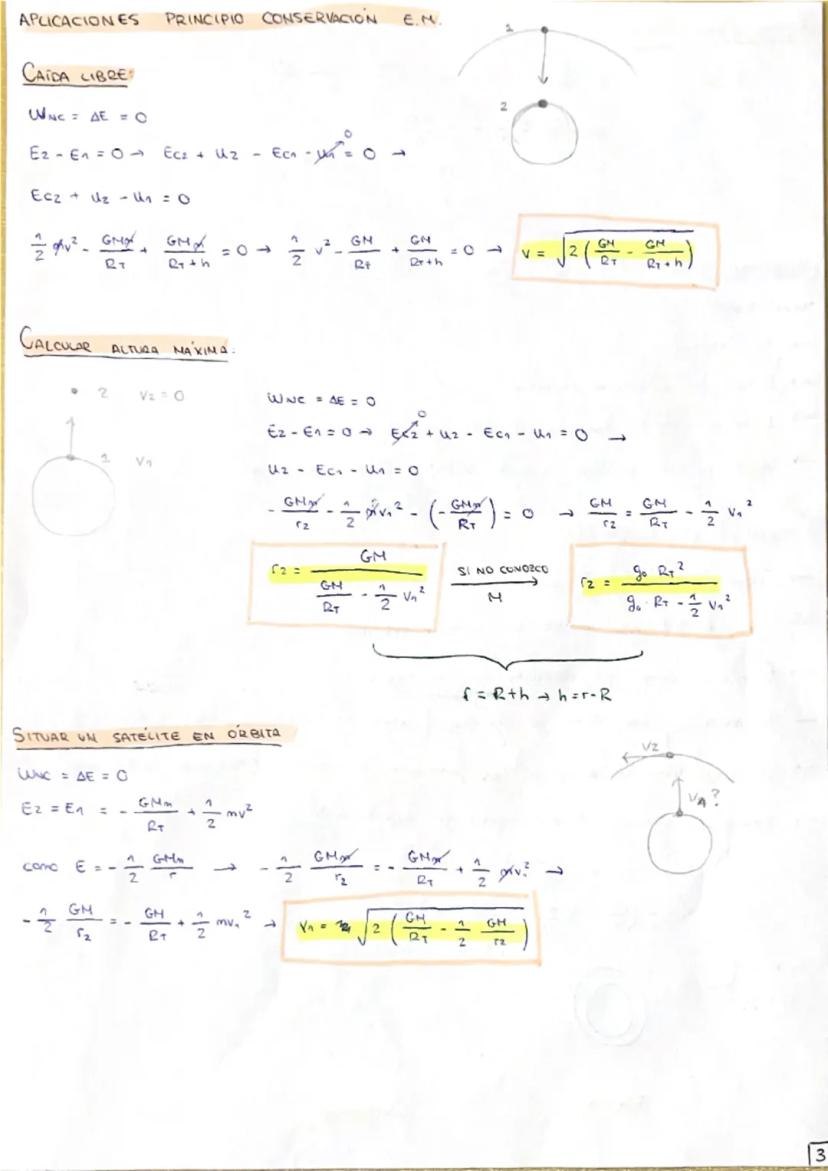 APLICACIONES PRINCIPIO CONSERVACIÓN E.M.
1
CAÍDA LIBRE:
2
WNC = ΔE = 0
E2 - E1 = 0 → Ec2 + U2 - Ec1 - U1 = 0 →
0
Ec2 + U2 - U1 = 0
1/2 mv² - GMm/RT + GMm/(RT + h) = 0 → 1/2 v² - GM/RT + GM/(RT+h) = 0 → v = √(2 (GM/RT - GM/(RT+h)))
CALCULAR ALTURA MÁXIMA:
2 V2 = 0
1 V1
WNC = ΔE = 0
0
E2 - E1 = 0 → Ec2 + U2 - Ec1 - U1 = 0 →
U2 - Ec1 - U1 = 0
- GMm/r2 - 1/2 mV1² - (- GMm/RT) = 0 → GM/r2 = GM/RT - 1/2 V1²
r2 = GM/(GM/RT - 1/2 V1²) SI NO CONOZCO M → r2 = g0 RT²/(g0 · RT - 1/2 V1²)
r = R+h → h = r-R
SITUAR UN SATÉLITE EN ÓRBITA
V2
VA?
WNC = ΔE = 0
E2 = E1 = - GMm/RT + 1/2 mv²
como E = - 1/2 GMm/r → - 1/2 GMm/r2 = - GMm/RT + 1/2 mv1² →
- 1/2 GM/r2 = - GM/RT + 1/2 mv1² → V1 = √(2 (GM/RT - 1/2 GM/r2))
3